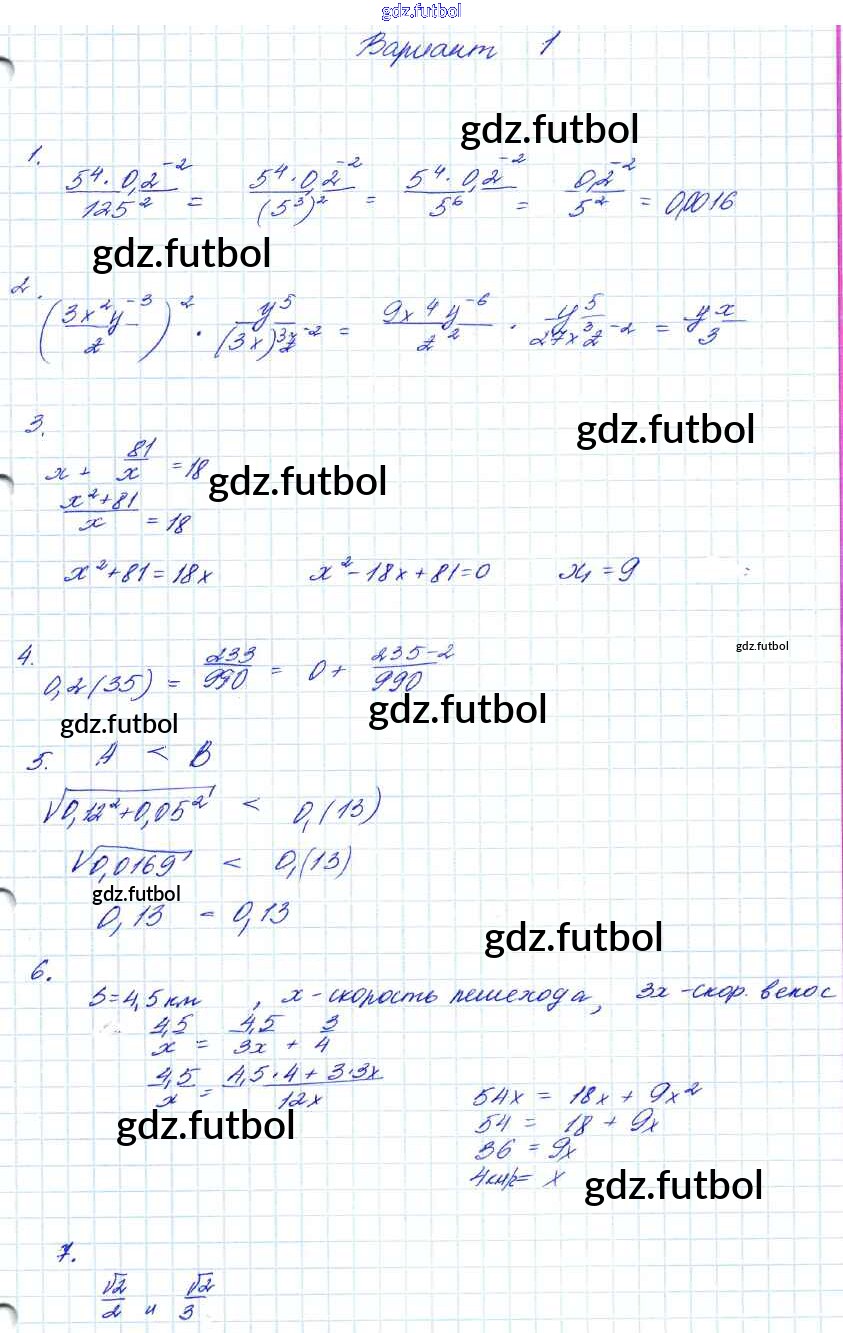 gdz.futbol
Вариант 1
gdz.futbol
1. 5⁴·0,2⁻²/125² = 5⁴·0,2⁻²/(5³)² = 5⁴·0,2⁻²/5⁶ = 0,2⁻²/5² = 0,0016
gdz.futbol
2. (3x²y⁻³/z)² · y⁵/(3x)³z⁻² = 9x⁴y⁻⁶/z² · y⁵/27x³z⁻² = yx/3
3.
gdz.futbol
x + 81/x = 18
gdz.futbol
x²+81/x = 18
x²+81=18x x²-18x+81=0 x₁=9
4.
gdz.futbol
0,2(35) = 233/990 = 0+ 235-2/990
gdz.futbol
gdz.futbol
5. A < B
√0,12²+0,05² < 0,(13)
√0,0169 < 0,(13)
gdz.futbol
0,13 = 0,13
gdz.futbol
6.
S=4,5км, x-скорость пешехода, 3x-скор. велос
4,5/x = 4,5/3x + 3/4
4,5/x = 4,5·4+3·3x/12x
54x = 18x + 9x²
54 = 18 + 9x
gdz.futbol
36 = 9x
4км/ч= x
gdz.futbol
7.
√2/2 и √2/3